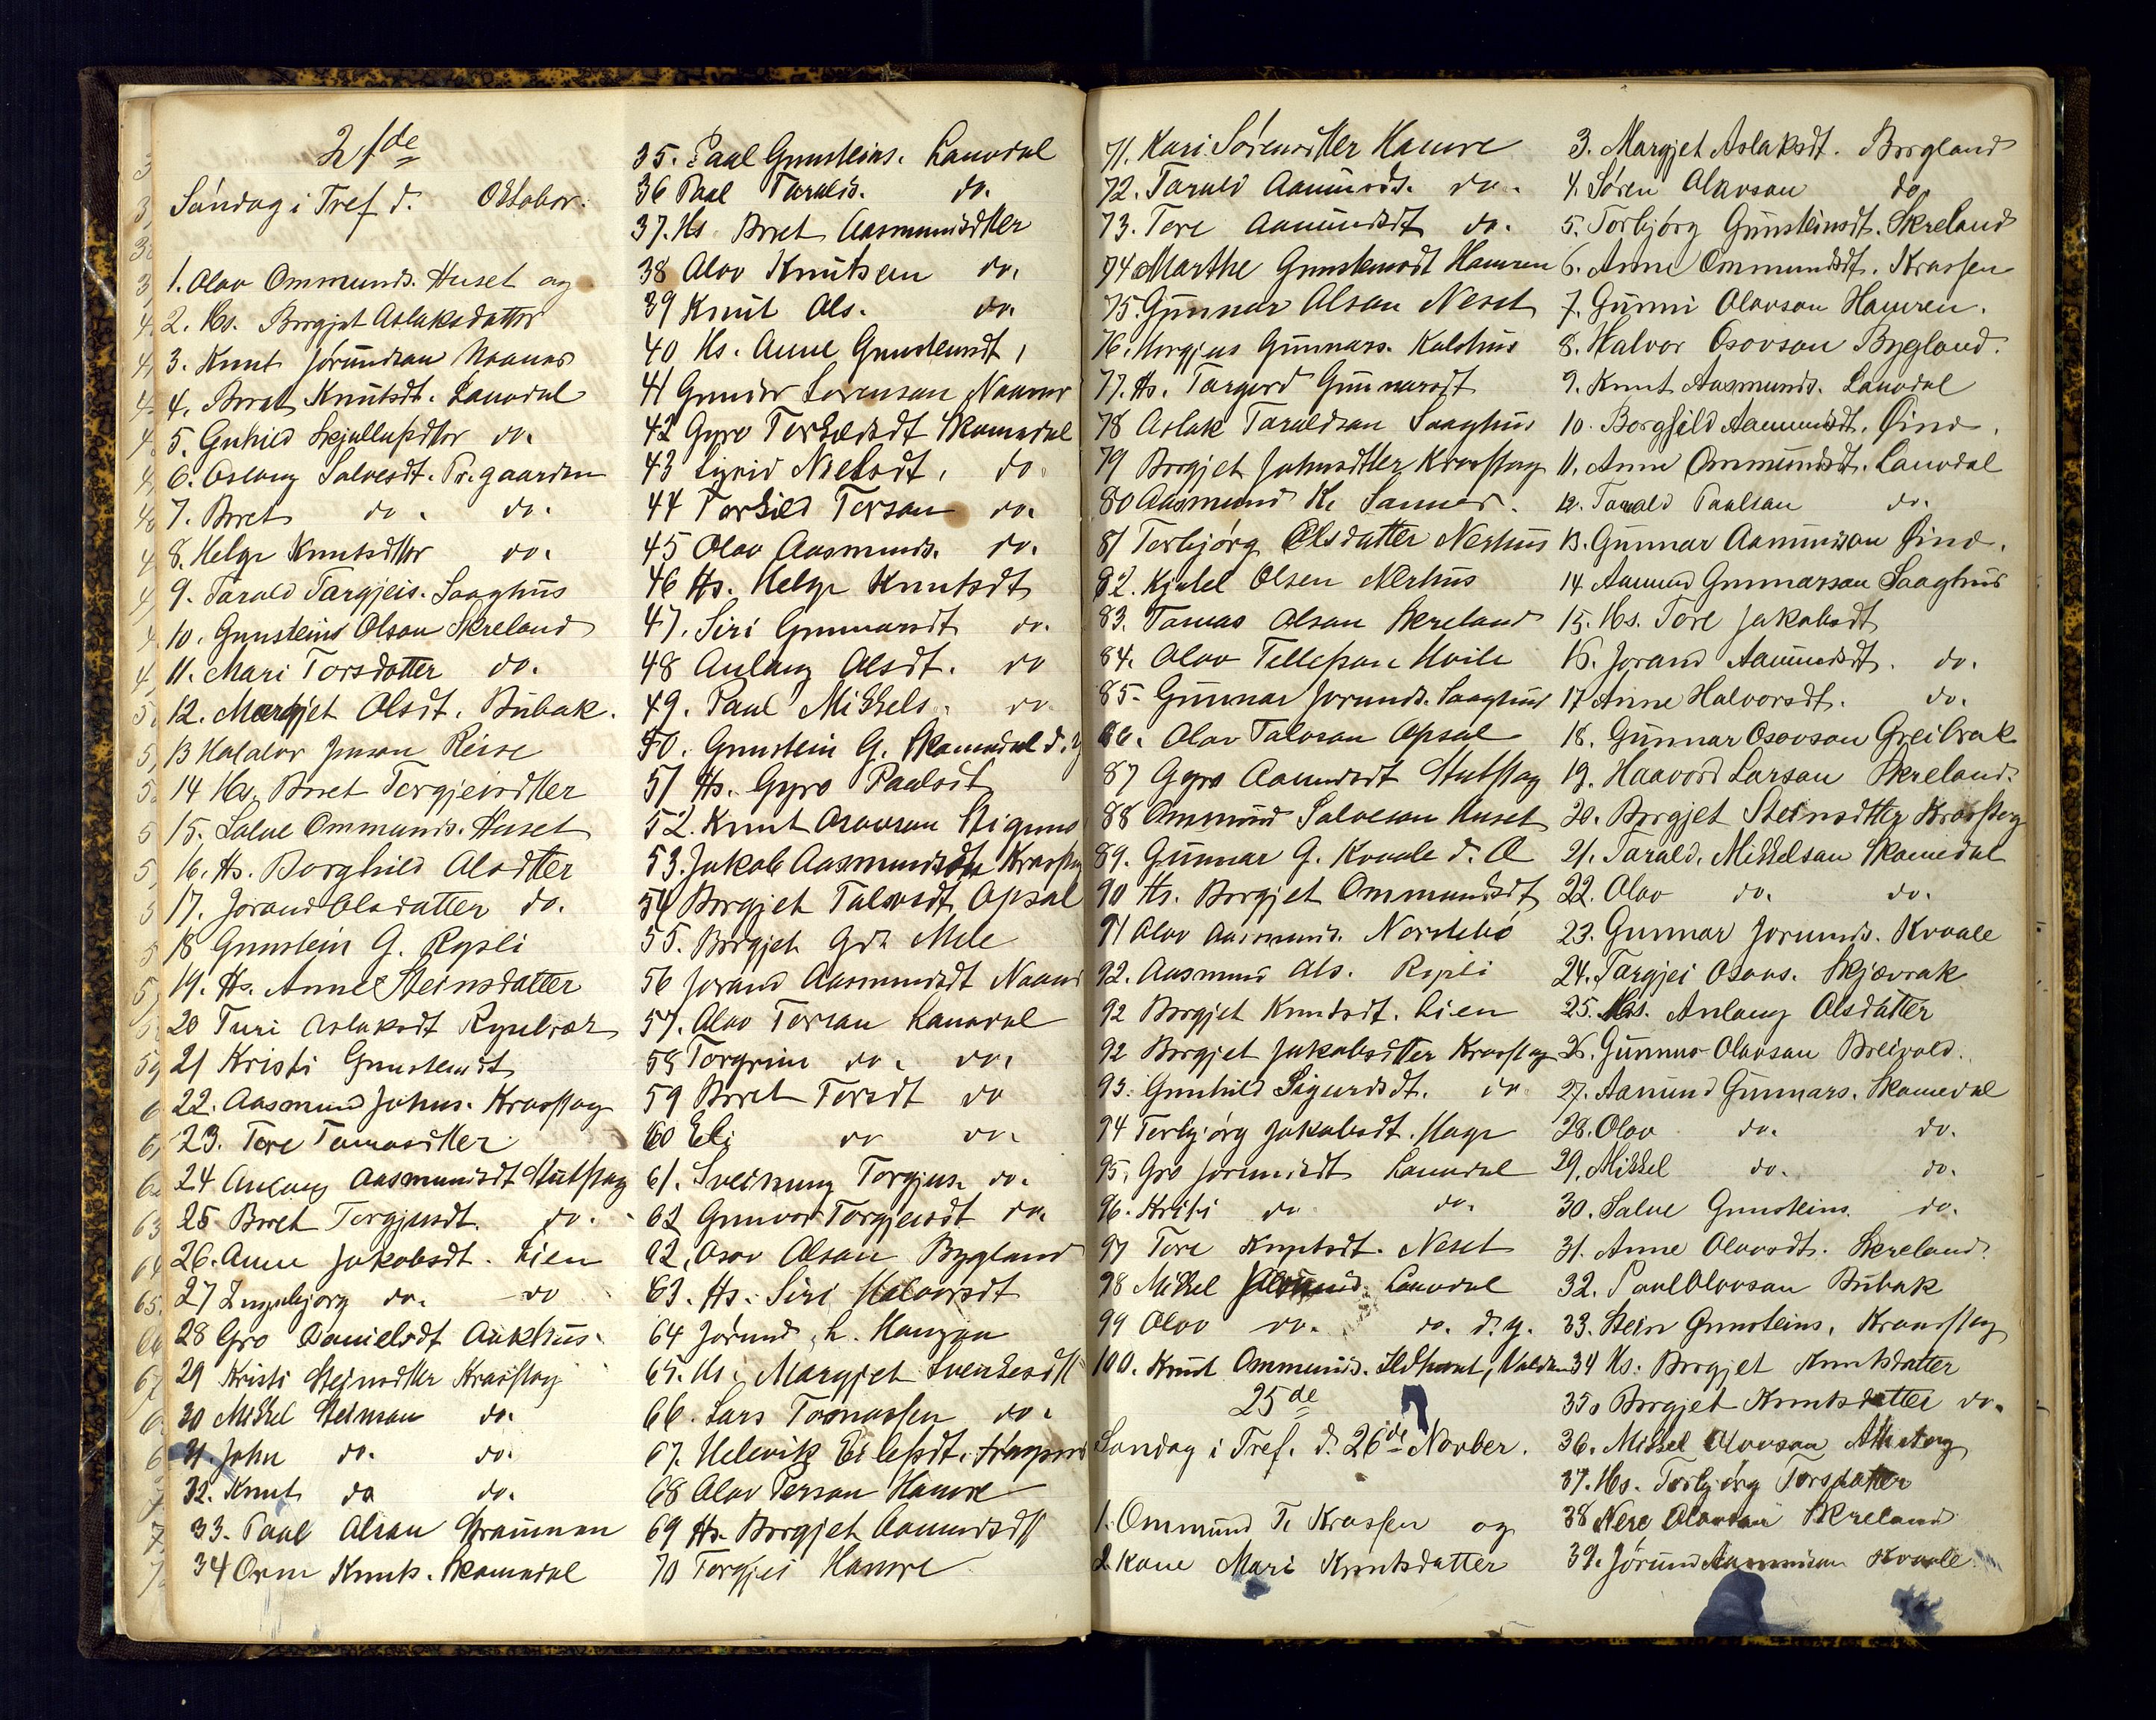 21de
Søndag i Tref d. Oktobor.
1. Olav Ommunds. Huset og
2. Hs. Borgjet Aslaksdatter
3. Knut Jorundsan Naanes
4. Boret Knutsdt. Lauvdal
5. Guhild Kjellufsdtor do.
6. Aslaug Salvesdt. Pr. gaarden
7. Boret do. do.
8. Helge Knutsdtter do.
9. Tarald Targjeis. Saaghus
10. Gunsteins Olson Skreland
11. Mari Torsdatter do.
12. Margjet Olsdt. Bubak.
13 Haldor Jonson Reise
14 Hs. Boret Torgjeisdtter
15. Salve Ommunds. Huset
16. Hs. Borghild Alsdtter
17. Jorand Olsdatter do.
18 Gunstein G. Rysli
19. Hs. Anne Steinsdatter
20 Turi Aslaksdt
21 Kristi Gunsteinsdt
22. Aasmund Johns. Kraostog
23. Tore Tomasdtter
24 Anlaug Aasmundsdt Stutstog
25 Boret Torgjusdt. do.
26. Anne Jakobsdt. Lien
27 Ingebjorg do. do
28 Gro Danielsdt Aakhus.
29 Kristi Steinsdtter Kraostog
30 Mikkel Steinson do.
31 John do. do.
32. Knut do do.
33. Paal Olsan Straumen
34 Orm Knuts. Skomedal
35. Paal Gunsteins. Lauvdal
36 Paal Taralds. do.
37. Hs Boret Aasmundsdtter
38 Olav Knutsen do.
39 Knut Ols. do.
40 Hs. Anne Gunsteinsdt,
41 Gunder Sorenson Naanes
42 Gyro Torkildsdt Skomedal
43 Sigrid Nielsdt. do
44 Torkild Torson do.
45 Olav Aasmunds. do.
46 Hs. Helge Knutsdt
47. Siri Gunnarsdt do.
48 Aulaug Olsdt. do
49. Paul Mikkels. do.
50. Gunstein G. Skomedal d. y
51 Hs. Gyro Paulsdt
52. Knut Osovson
53. Jakob Aasmundsdtr Kraostog
54 Borgjet Talovsdt Opsal
55. Borgjet Gdt Mele
56 Jorand Aasmundsdt Naanes
57. Olav Torsan Lauvdal
58 Torgrim do. do.
59 Boret Torsdt do
60 Eli do do.
61. Sveinung Torgjus. do.
62 Gunvor Torgjeisdt do.
62. Osov Olsan Bygland
63. Hs. Siri Halvorsdt
64 Jorund L. Haugen
65. Hs. Margjet
66. Lars Tomassen do.
67. Helevik Eilefsdt.
68 Olav Person Hamre
69 Hs. Borgjet Aamundsdt
70 Torgjei Hamre
71. Kari Sørensdtter Hamre
72. Tarald Aamunds. do.
73. Tore Aamundsdt do.
74 Marthe Gunsteinsdt Hamren
75. Gunnar Olsan Neset
76. Torgjus Gunnars. Kaldhus
77. Hs. Targerd Gunnarsdt
78 Aslak Taraldsan Saaghus
79 Borgjet Johnsdtter Kraostog
80 Aasmund K. Sannes.
81 Torbjørg Olsdatter Neshus
82. Kjetel Olsen Neshus
83. Tomas Olsan Skreland
84. Olav Tellefsan Hvile
85. Gunnar Jorunds. Saaghus
86. Olav Talovson Opsal
87 Gyro Aamundsdt Stutstog
88 Ommund Salveson Huset
89. Gunnar G. Kvaale d. Æ
90 Hs. Borgjet Ommundsdt
91 Olav Aasmunds. Nordebø
92. Aasmund Als. Rysli
92 Borgjet Knutsdt. Lien
92 Borgjet Jakobsdtter Kraostog
93. Gunhild Sigurdsdt. do
94 Torbjørg Jakobsdt. Hage
95. Gro Jorundsdt Lauvdal
96. Kristi do do.
97 Tore Knutsdt. Neset
98 Mikkel Lauvdal
99 Olav do. do. d. y.
100. Knut Ommunds.
25de
Søndag i Tref. d. 26de Novber.
1. Ommund T. Krossen og
2. Kone Mari Knutsdatter
3. Margjet Aslaksdt. Borgland
4. Søren Olavson do.
5. Torbjørg Gunsteinsdt. Skreland
6. Anne Ommundsdt. Krossen
7. Gunni Olavson Hamren.
8. Halvor Osovson Bygland.
9. Knut Aasmunds. Lauvdal
10. Borghild Aamundsdt. Øind.
11. Anne Ommundsdt. Lauvdal
12. Tarald Paulson do.
13. Gunnar Aamundson Øind.
14. Aamund Gunnarson Saaghus
15. Hs. Tore Jakobsdt
16. Jorand Aamundsdt. do.
17 Anne Halvorsdt. do.
18. Gunnar Osovson Greibrak
19. Haavord Larson Skreland.
20. Borgjet Steinsdtter Kraostog
21. Tarald. Mikkelsan Skomedal
22. Olav do. do.
23. Gunnar Jorunds. Kvaale
24. Targjei Osovs. Skjævrak
25. Hs. Anlaug Olsdatter
26. Gunnar Olavsan Breivold.
27. Aamund Gunnars. Skomedal
28. Olav do. do.
29. Mikkel do. do.
30. Salve Gunsteins. do.
31. Anne Olavsdt. Skreland.
32. Paul Olavsan Bubak
33. Stein Gunsteins. Kraostog
34 Hs. Borgjet Knutsdatter
35. Borgjet Knutsdatter do.
36. Mikkel Olovson
37. Hs. Torbjørg Torsdatter
38 Nere Olavsan Skreland
39. Jørund Aamundson Kvaale